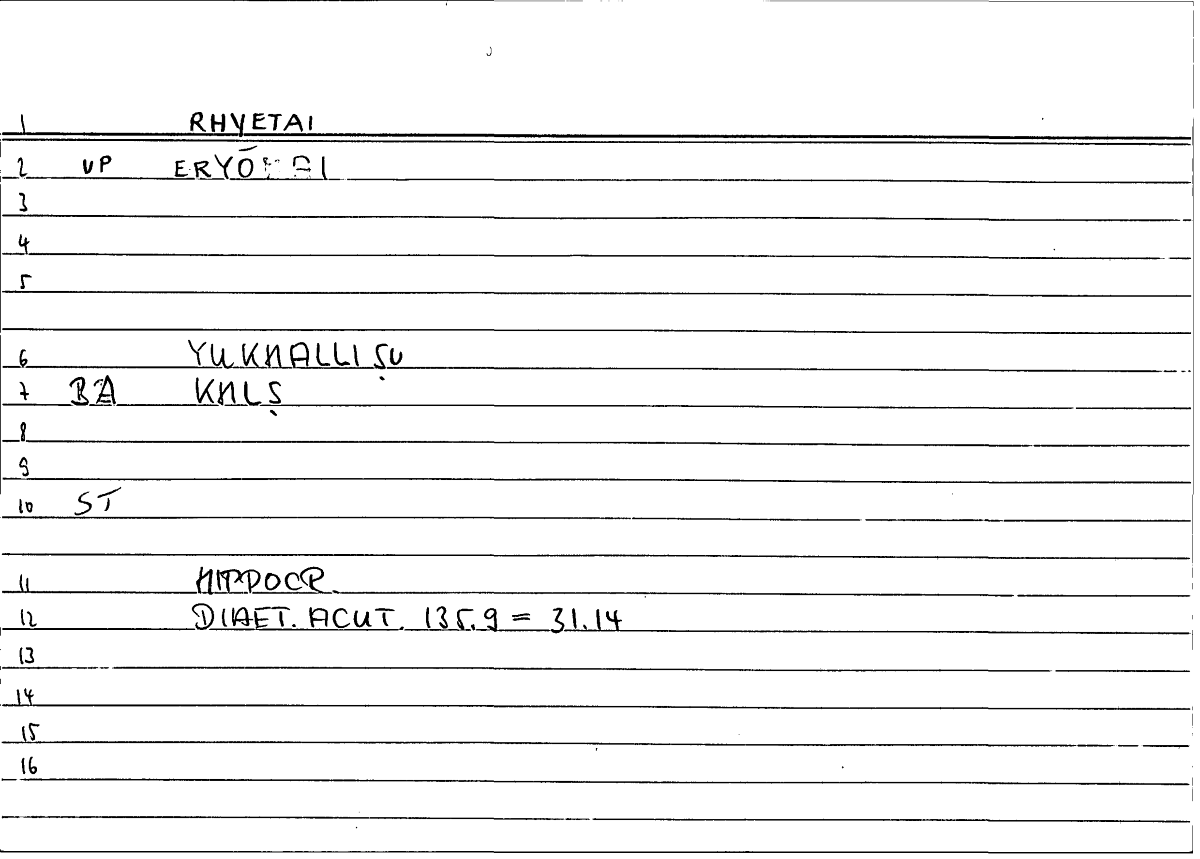 1 RHYETAI
2 VP
3
4
5
6 YUKHALLIṢU
7 BA KHLṢ
8
9
10 ST
11 HIPPOCR.
12 DIAET. ACUT. 135.9 = 31.14
13
14
15
16